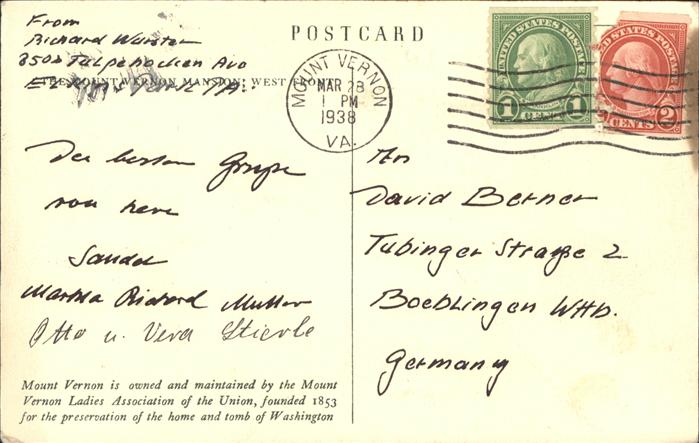 POSTCARD
From
Richard Wurster
3502 Tulpehocken Ave
THE MOUNT VERNON MANSION, WEST FRONT
MOUNT VERNON
MAR 28
1 PM
1938
VA.
UNITED STATES POSTAGE
1 1
CENT
UNITED STATES POSTAGE
2
CENTS
Die besten Grüße
von hier
Sendet
Martha Richard Mutter
Otto u. Vera Stierle
An
David Berner
Tubinger Straße 2
Boeblingen Wttb.
Germany
Mount Vernon is owned and maintained by the Mount
Vernon Ladies Association of the Union, founded 1853
for the preservation of the home and tomb of Washington